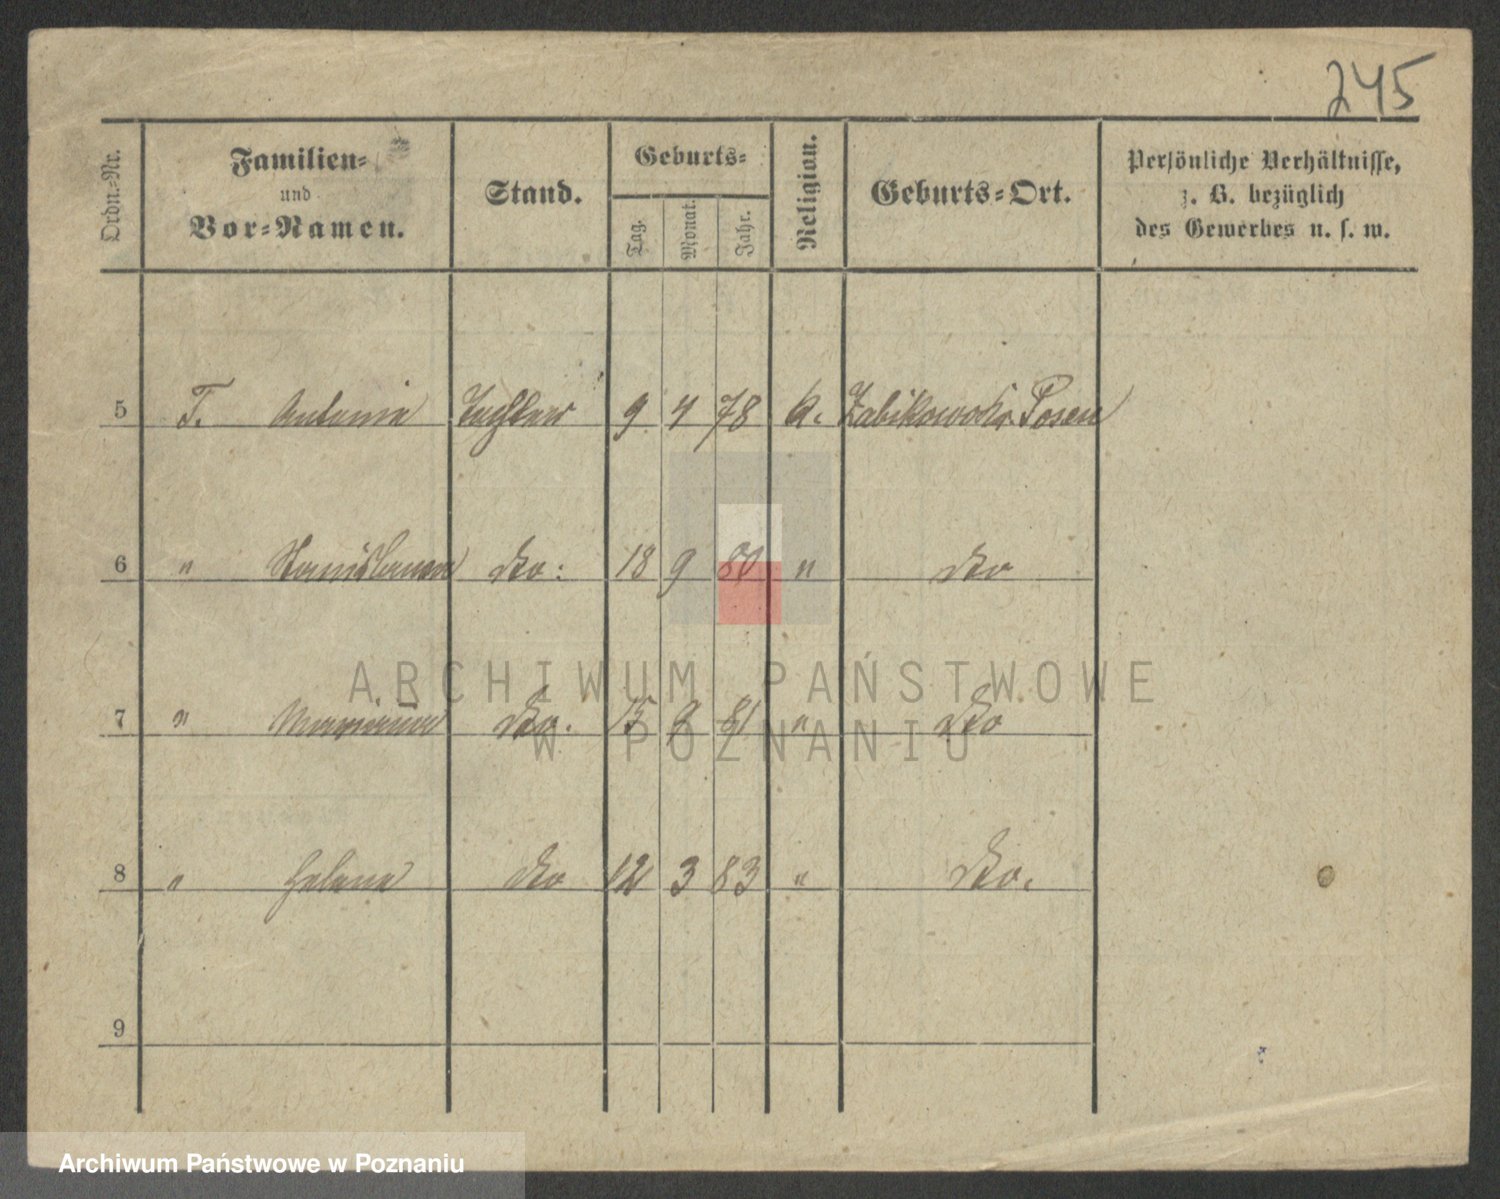 245
Ordn.-Nr.
Familien-
und
Vor-Namen.
Stand.
Geburts-
Tag.
Monat.
Jahr.
Religion.
Geburts-Ort.
Persönliche Verhältnisse,
z. B. bezüglich
des Gewerbes u. s. w.
5 T. Antonie Tochter 9 4 78 k. Zabikowo Kr. Posen
6 " Stanislawa dto: 18 9 80 " dto
7 " Marianna dto. 15 8 81 " dto
8 " Helene dto 12 3 83 " dto.
9
ARCHIWUM PAŃSTWOWE
W POZNANIU
Archiwum Państwowe w Poznaniu